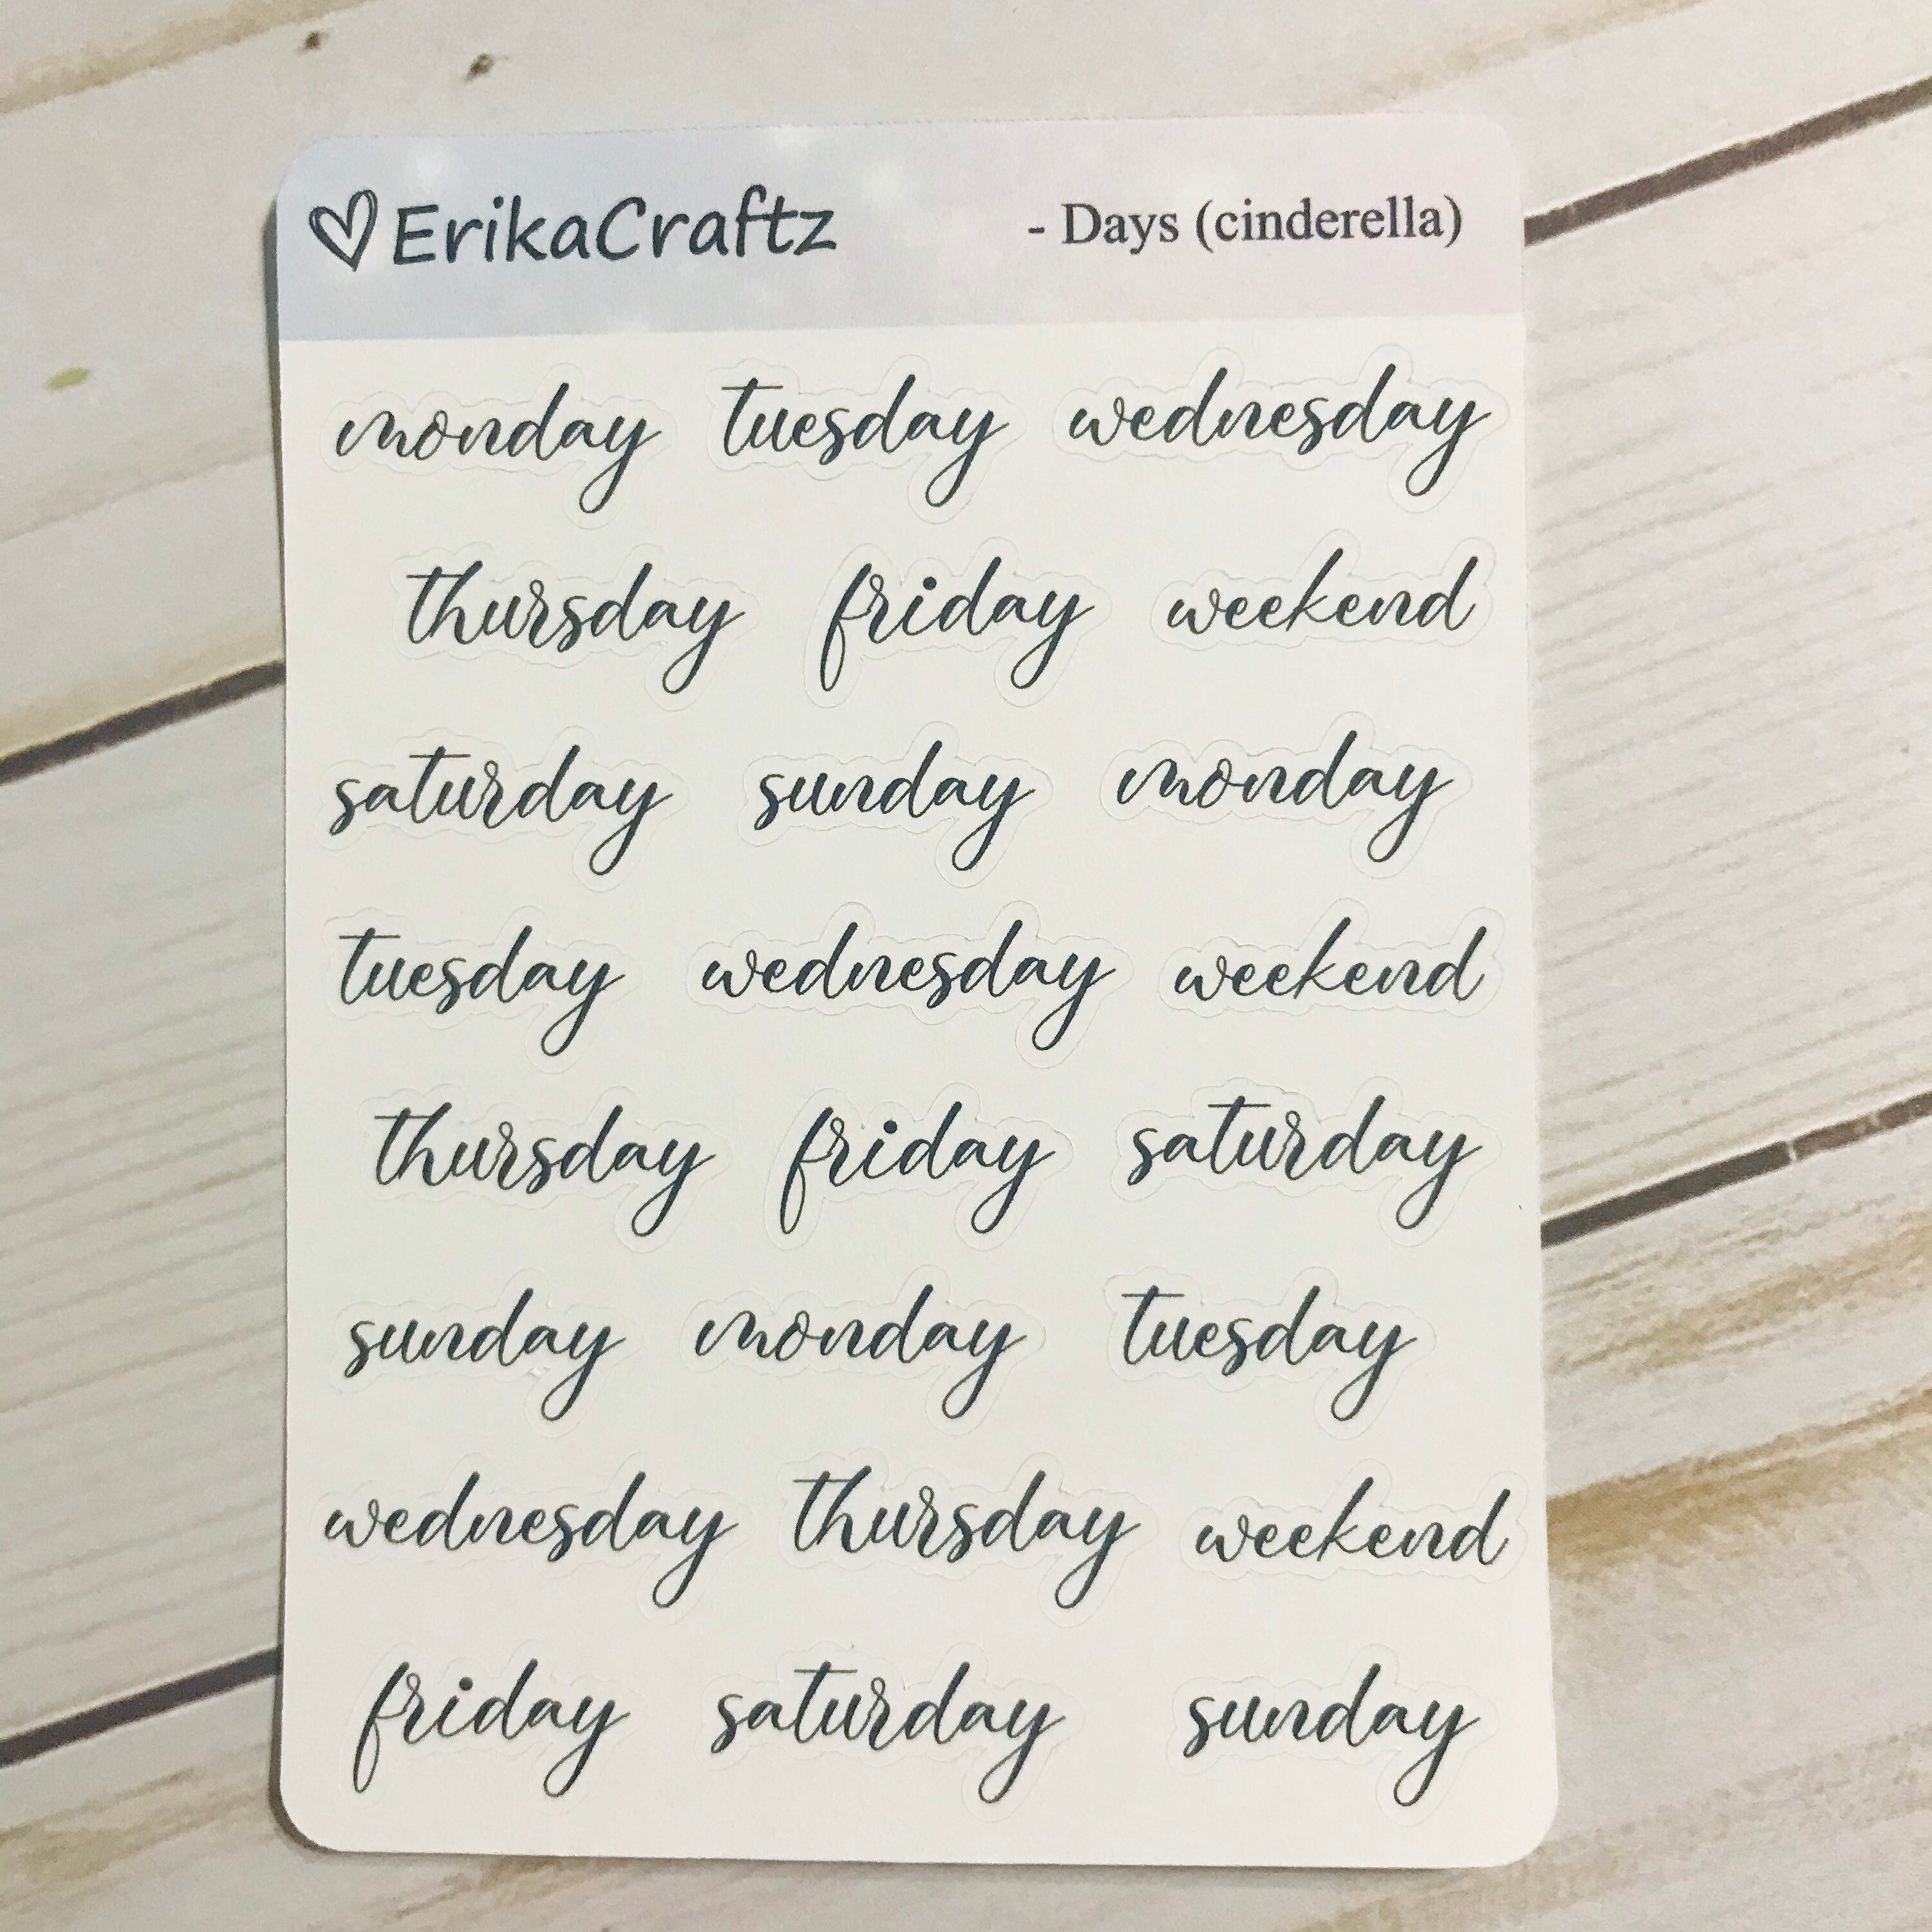 ♡ErikaCraftz - Days (cinderella)
monday tuesday wednesday
thursday friday weekend
saturday sunday monday
tuesday wednesday weekend
thursday friday saturday
sunday monday tuesday
wednesday thursday weekend
friday saturday sunday